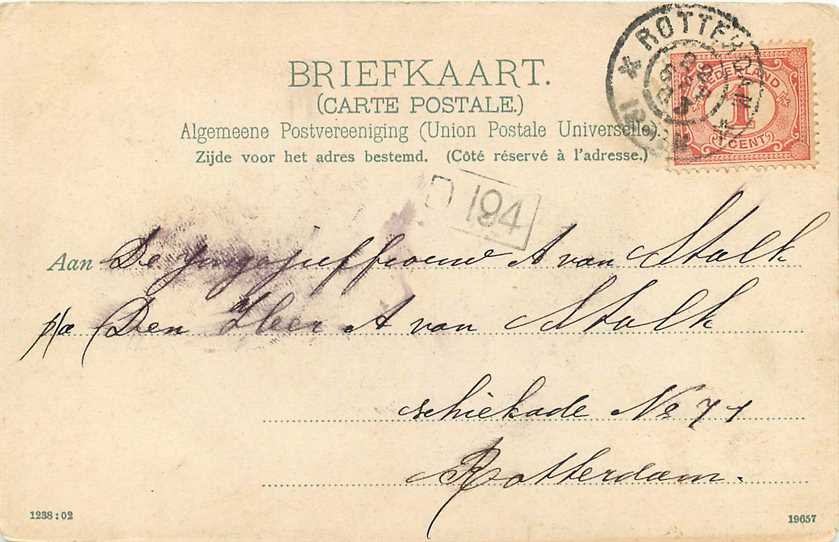 BRIEFKAART.
(CARTE POSTALE.)
Algemeene Postvereeniging (Union Postale Universelle)
Zijde voor het adres bestemd. (Côté réservé à l'adresse.)
ROTTERDAM
NEDERLAND
1
CENT
D 194
Aan De Jongejuffrouw A van Stalk
p/a Den Heer A van Stalk
Schiekade No 71
Rotterdam.
1238:02
19657